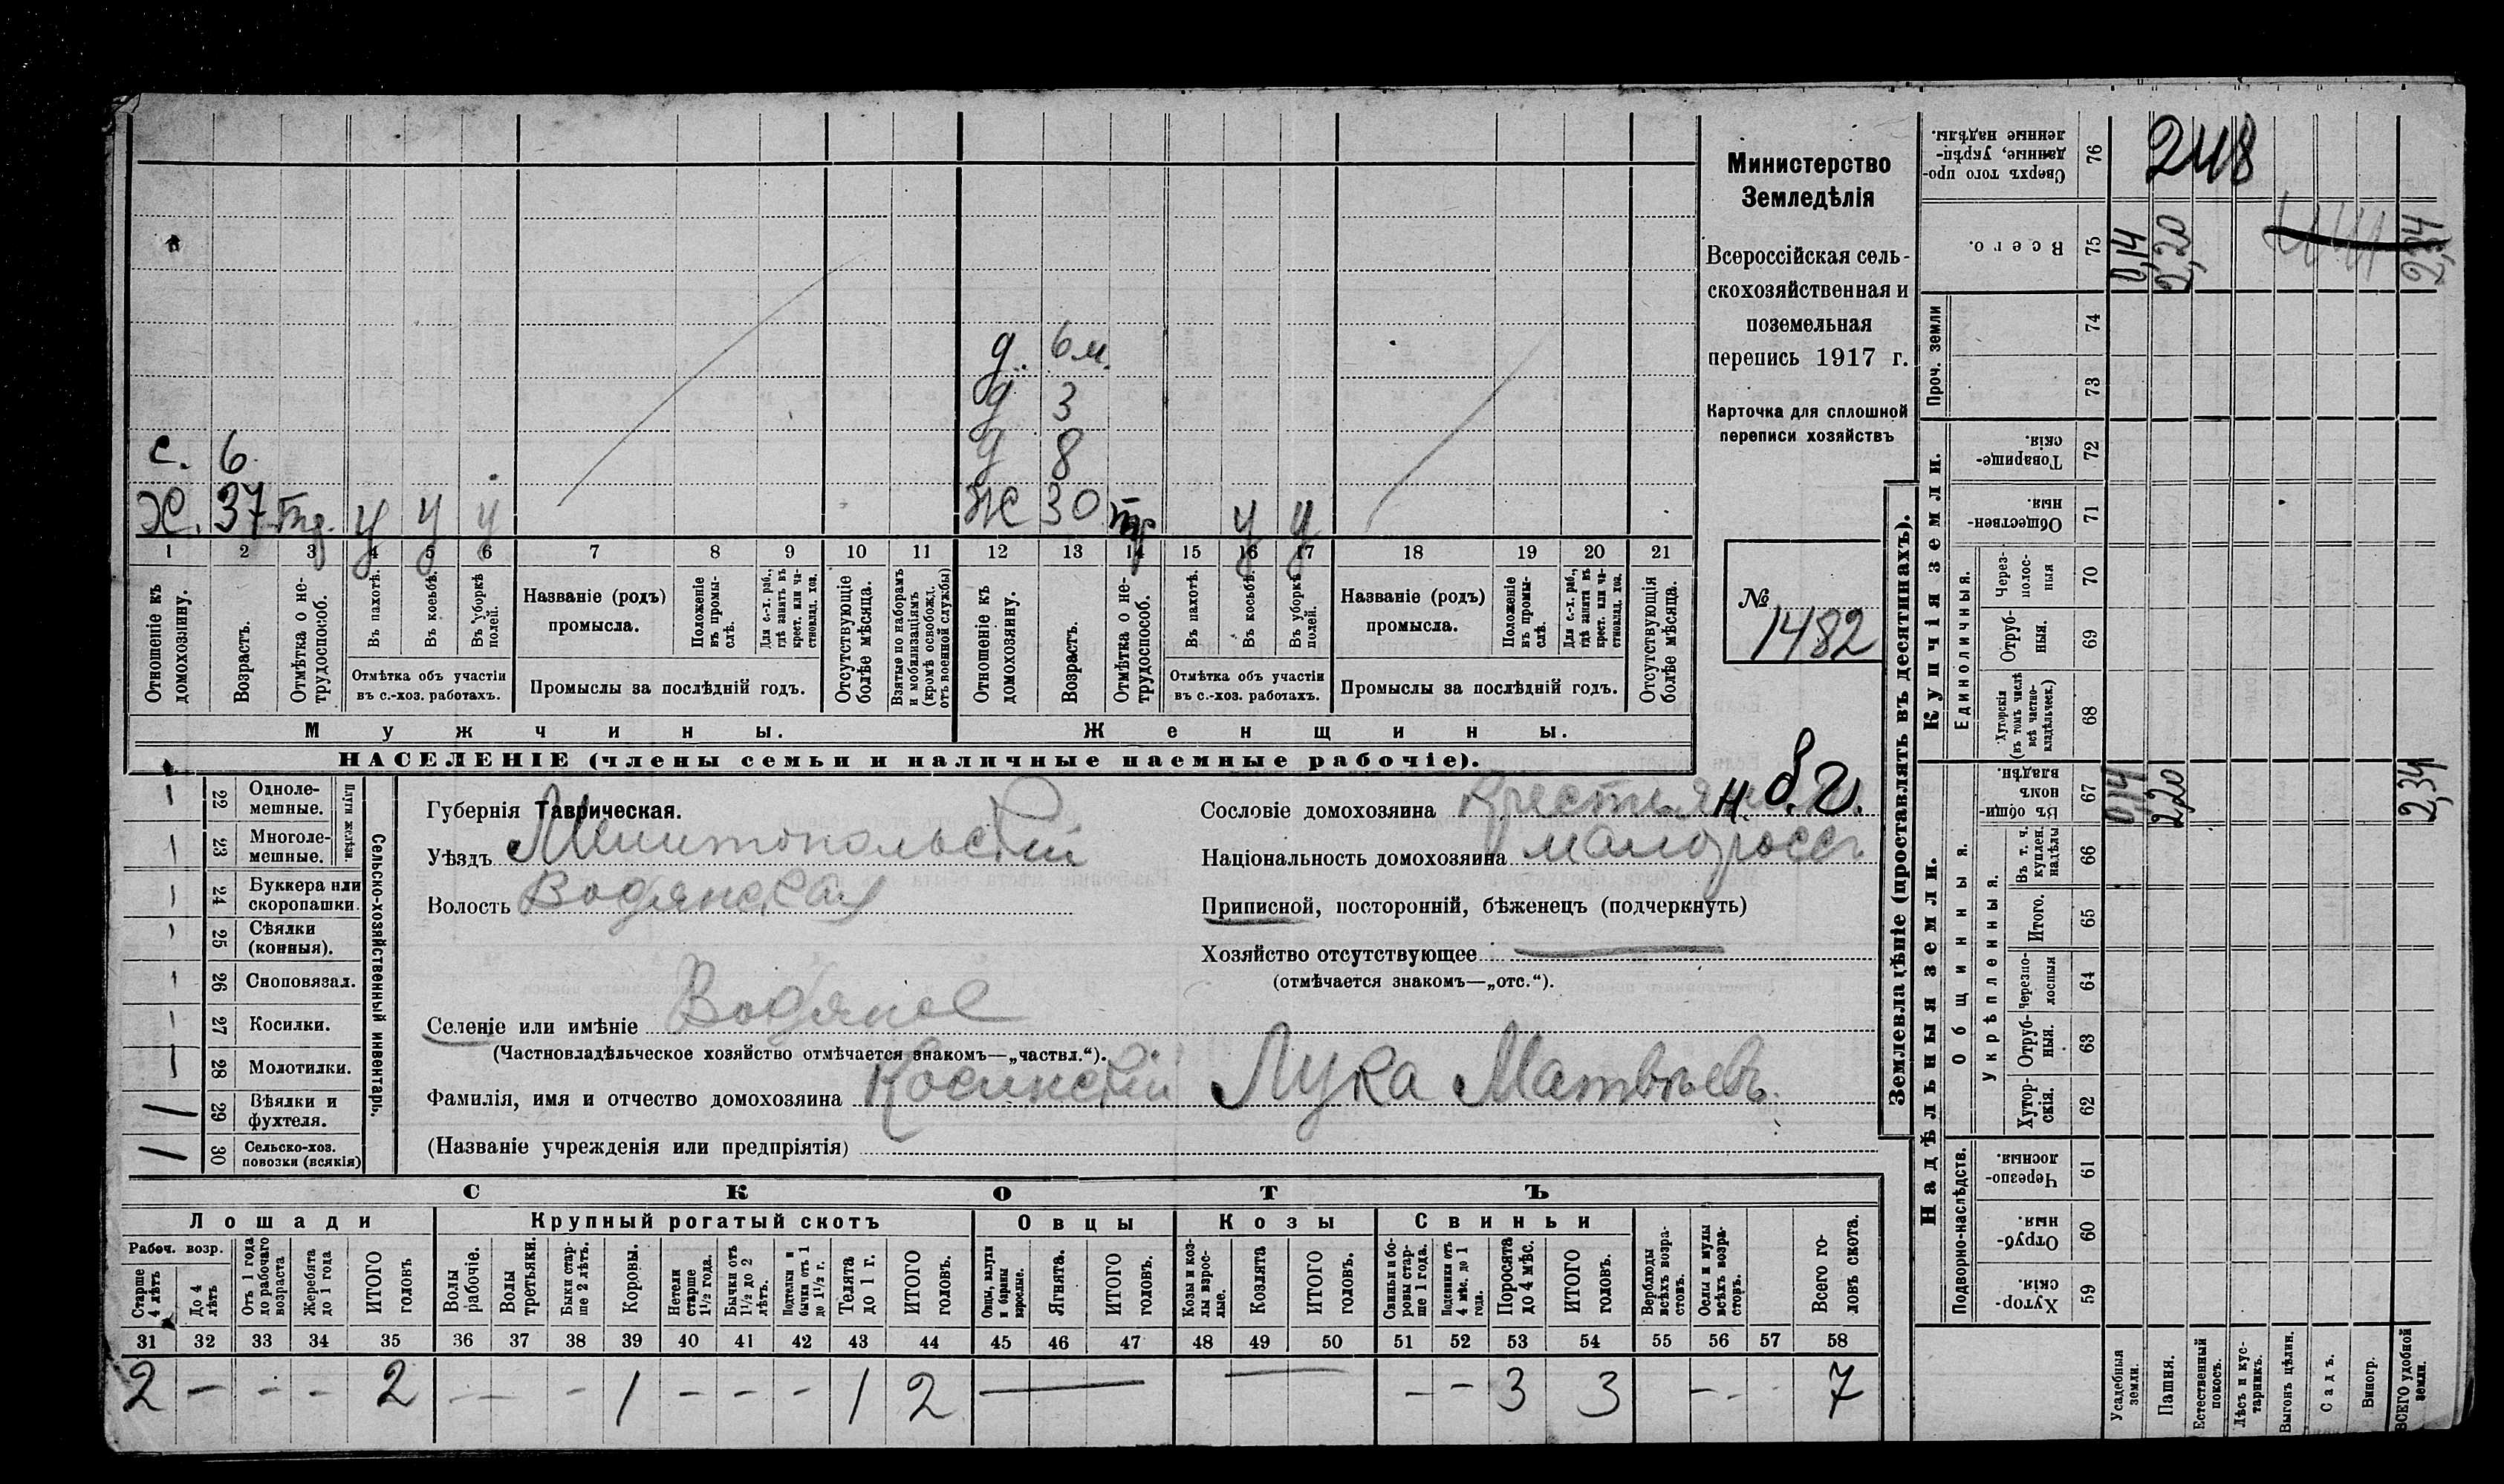 Министерство
Земледѣлія
Всероссійская сель-
скохозяйственная и
поземельная
перепись 1917 г.
Карточка для сплошной
переписи хозяйствъ
№
1482
д. 6 м.
д 3
с. 6 д 8
Х. 37 Тр. у у у Ж 30 тр у у
1 2 3 4 5 6 7 8 9 10 11 12 13 14 15 16 17 18 19 20 21
Отношеніе къ домохозяину.
Возрастъ.
Отмѣтка о не-трудоспособ.
Въ пахотѣ.
Въ косьбѣ.
Въ уборкѣ полей.
Отмѣтка объ участіи
въ с.-хоз. работахъ.
Названіе (родъ)
промысла.
Положеніе въ промы-слѣ.
Для с.-х. раб., гдѣ занятъ въ крест. или ча-стновлад. хоз.
Промыслы за послѣдній годъ.
Отсутствующіе болѣе мѣсяца.
Взятые по наборамъ и мобилизаціямъ (кромѣ освобожд. отъ военной службы)
Отношеніе къ домохозяину.
Возрастъ.
Отмѣтка о не-трудоспособ.
Въ пахотѣ.
Въ косьбѣ.
Въ уборкѣ полей.
Отмѣтка объ участіи
въ с.-хоз. работахъ.
Названіе (родъ)
промысла.
Положеніе въ промы-слѣ.
Для с.-х. раб., гдѣ занята въ крест. или ча-стновлад. хоз.
Промыслы за послѣдній годъ.
Отсутствующія болѣе мѣсяца.
Мужчины. Женщины.
НАСЕЛЕНІЕ (члены семьи и наличные наемные рабочіе).
Сельско-хозяйственный инвентарь.
Плуги желѣзн.
22 Одноле-мешные.
23 Многоле-мешные.
24 Буккера или скоропашки.
25 Сѣялки (конныя).
26 Сноповязал.
27 Косилки.
28 Молотилки.
29 Вѣялки и фухтеля.
30 Сельско-хоз. повозки (всякія)
Губернія Таврическая.
Уѣздъ Мелитопольскій
Волость Водянская
Селеніе или имѣніе Водяное
(Частновладѣльческое хозяйство отмѣчается знакомъ—„частвл.“).
Фамилія, имя и отчество домохозяина Косинскій Лука Матвѣевъ.
(Названіе учрежденія или предпріятія)
Сословіе домохозяина Крестьянинъ
Національность домохозяина малороссъ
Приписной, посторонній, бѣженецъ (подчеркнуть)
Хозяйство отсутствующее
(отмѣчается знакомъ—„отс.“).
СКОТЪ
Лошади Крупный рогатый скотъ Овцы Козы Свиньи
Рабоч. возр.
Старше 4 лѣтъ
До 4 лѣтъ
Отъ 1 года до рабочаго возраста
Жеребята до 1 года
ИТОГО головъ
Волы рабочіе.
Волы третьяки.
Быки стар-ше 2 лѣтъ.
Коровы.
Нетели старше 1½ года.
Бычки отъ 1½ до 2 лѣтъ.
Подтелки и бычки отъ 1 до 1½ г.
Телята до 1 г.
ИТОГО головъ.
Овцы, валухи и бараны взрослые.
Ягнята.
ИТОГО головъ.
Козы и коз-лы взрос-лые.
Козлята
ИТОГО головъ.
Свиньи и бо-ровы стар-ше 1 года.
Подсвинки отъ 4 мѣс. до 1 года.
Поросята до 4 мѣс.
ИТОГО головъ.
Верблюды всѣхъ возра-стовъ.
Ослы и мулы всѣхъ возра-стовъ.
Всего го-ловъ скота.
31 32 33 34 35 36 37 38 39 40 41 42 43 44 45 46 47 48 49 50 51 52 53 54 55 56 57 58
2 — - - 2 — - 1 - - - 1 2 — — - - 3 3 - - 7
Землевладѣніе (проставлять въ десятинахъ).
Купчія земли.
Надѣльныя земли.
Проч. земли
Единоличныя.
Общинныя.
Укрѣпленныя.
Подворно-наслѣдств.
Сверхъ того про-данные, укрѣп-ленные надѣлы. 76 248
Всего. 75 0,14 2,20 2,34
74
73
Товарище-скія. 72
Обществен-ныя 71
Через-полос-ныя 70
Отруб-ныя. 69
Хуторскія (въ томъ числѣ всѣ частно-владѣльческ.) 68
Въ общин-номъ владѣн. 67 0,14 2,20 2,34
Въ т. ч. куплен. надѣлы 66
Итого. 65
Черезпо-лосныя 64
Отруб-ныя. 63
Хутор-скія. 62
Черезпо-лосныя. 61
Отруб-ныя. 60
Хутор-скія. 59
Усадебныя земли.
Пашня.
Естественный покосъ.
Лѣсъ и кус-тарникъ.
Выгонъ цѣлин.
Садъ.
Виногр.
ВСЕГО удобной земли.